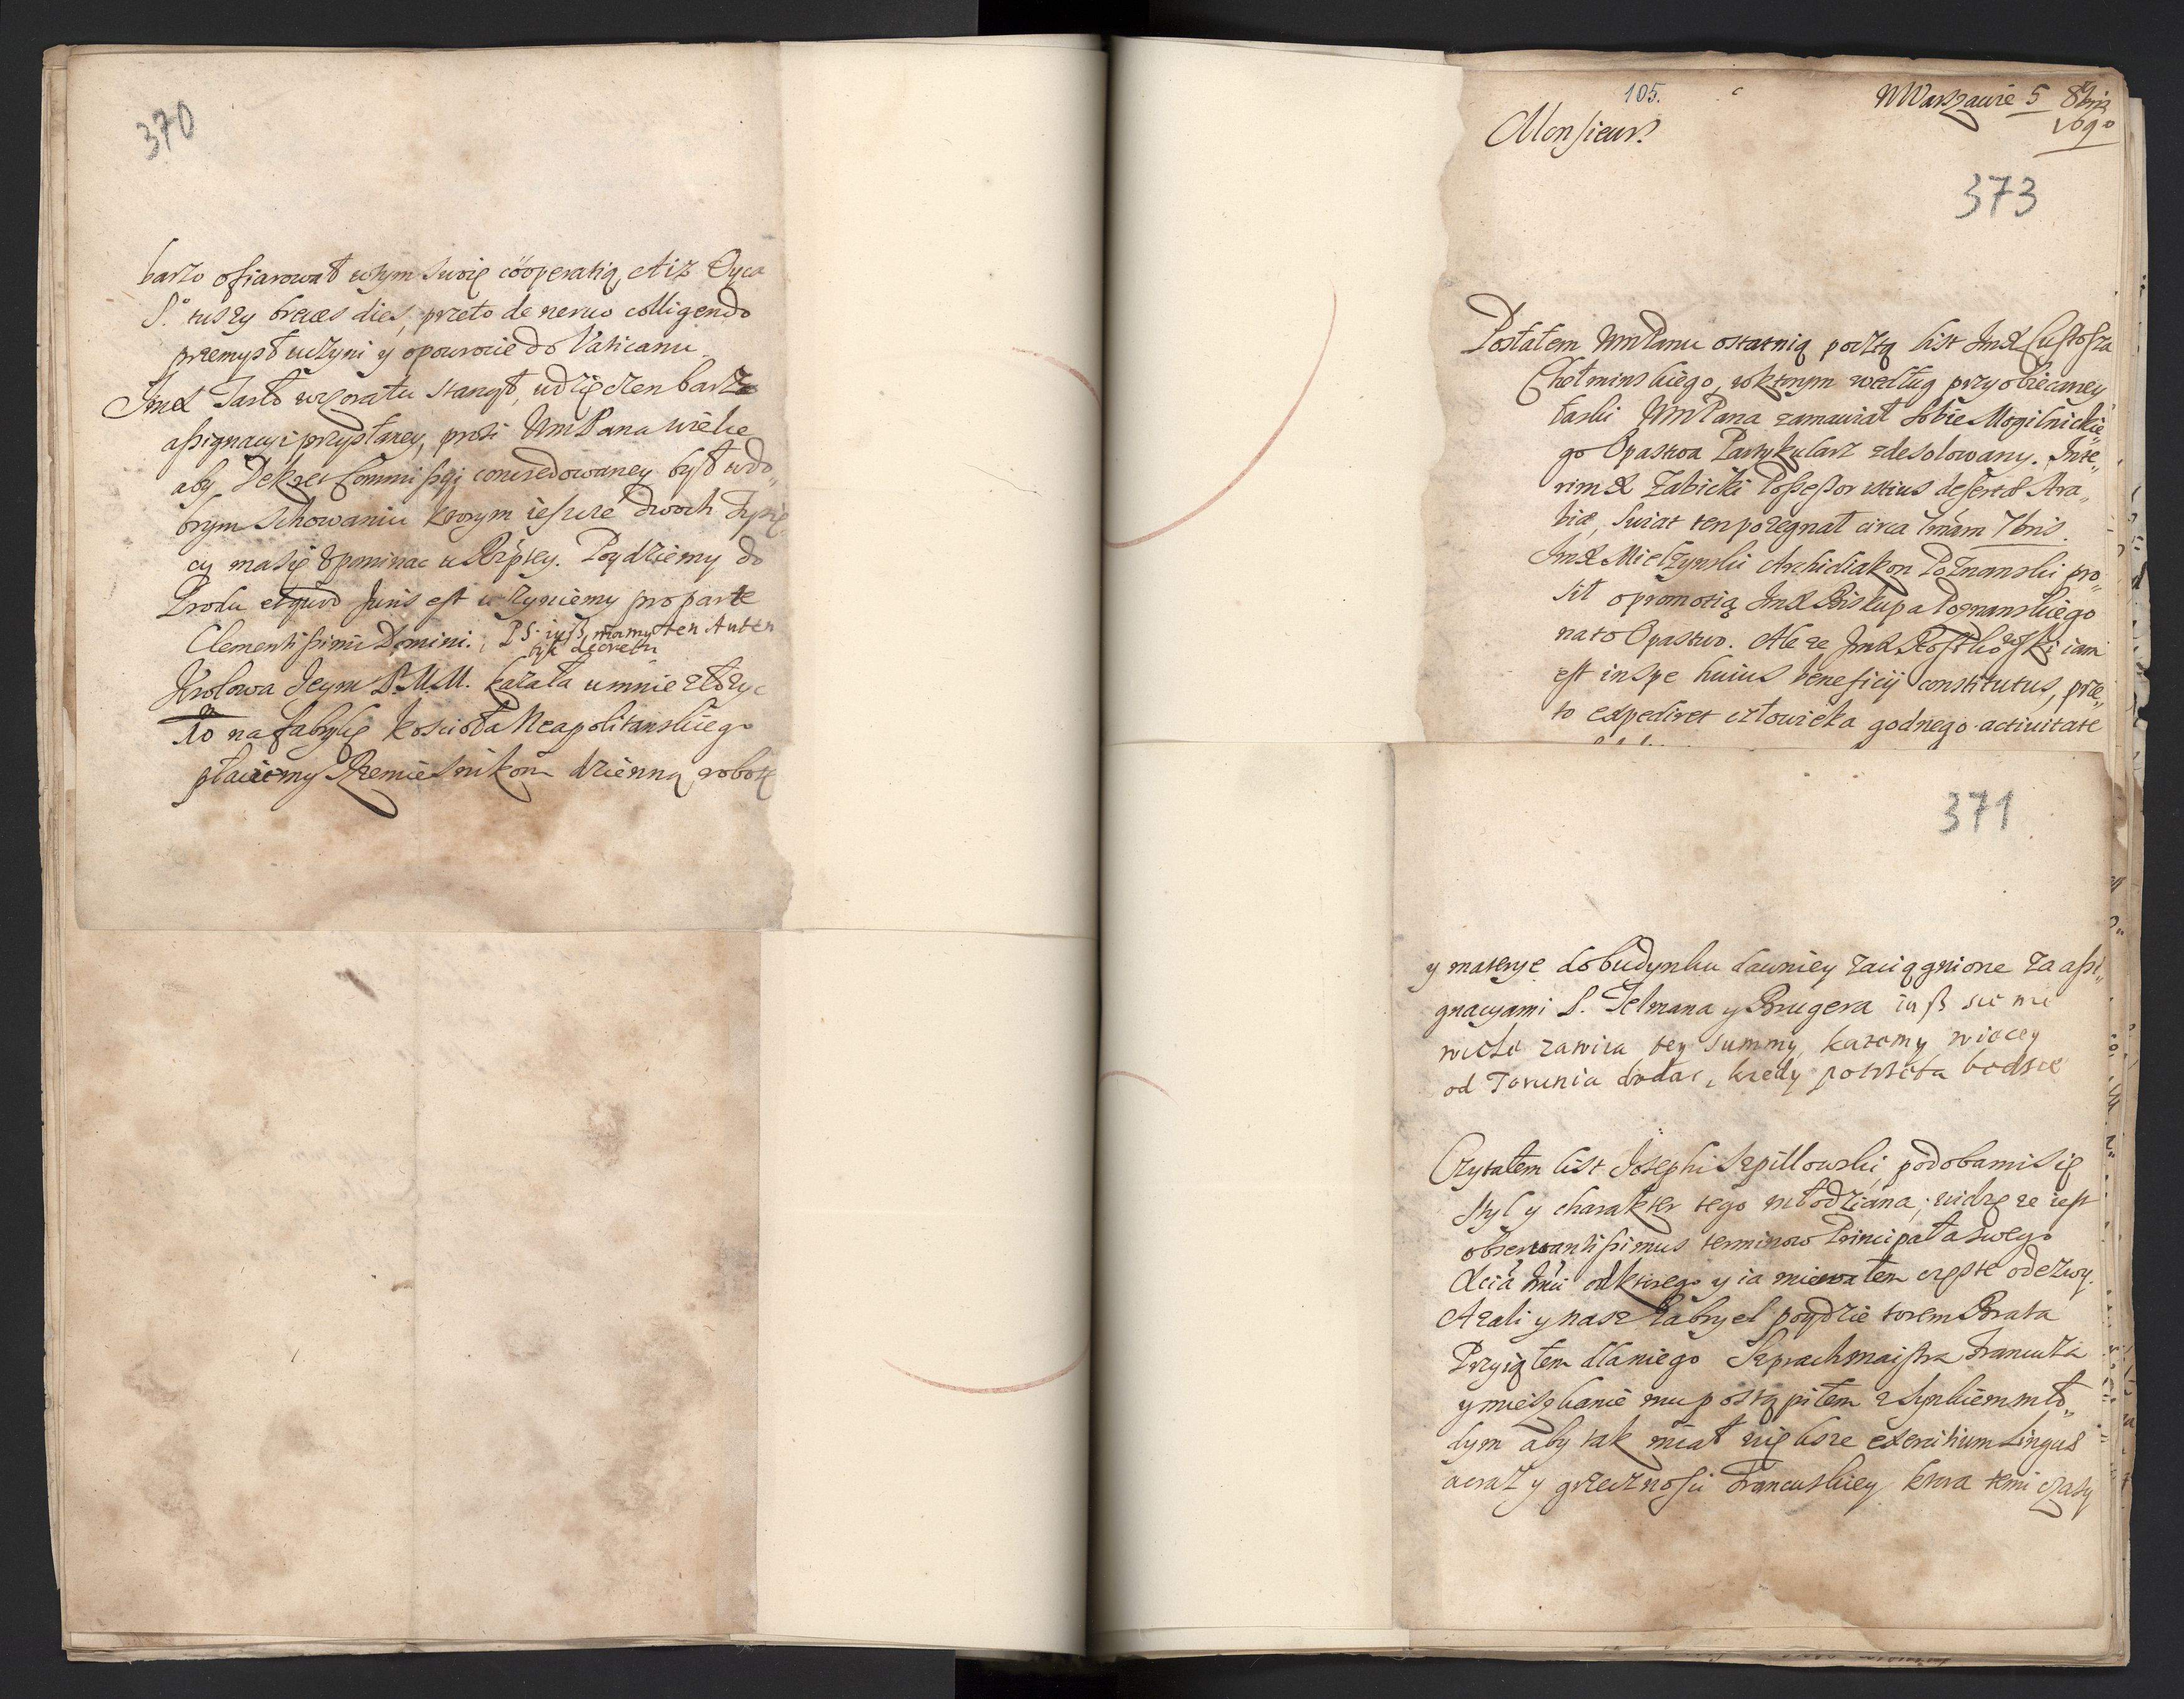 370
barzo ofiarował wtym swoię cooperatią, A iz Oyca
S. tuszy breues dies, przeto de neruo colligendo
przemysł uczyni y opowrocie do Vaticanu
Jmć Jasło stanął, wdzięczen barzo
assignacyi przysłaney, prosi WmPana wielce
aby Dekret Commissyi concredowaney był wdo„
brym schowaniu ktorym ieszcze dwoch Tysię„
cy ma się upominac u Rzptey. Poydziemy do
Grodu et quod Juris est uczyniemy pro parte
Clementissimi Domini. PS. iusz mamy ten Auten
tyk decretu
Krolowa Jeym P.M.M. kazała umnie złozyc
10 na fabrykę koscioła Neapolitanskiego
płaciemy Rzemiesnikom dzienną robotę
105.
WWarszawie 5 8bris
1690
Monsieur
373
Posłałem WmPanu ostatnią pocztą list Jmć Custosza
Chełminskiego, wktorym według przyobiecaney
łaski WmPana zamawiał sobie Mogilnickie„
go Opactwa Partykularz zdesolowany. Inte„
rim X Zabicki Possessor istius desertæ Ara„
biæ, swiat ten pozegnał circa 7bris.
JmX Mielzynski Archidiakon Poznanski pro„
sił opromotią JmX Biskupa Poznanskiego
na to Opactwo. Ale ze JmX iam
est in spe huius beneficij constitutus, prze„
to expediret człowieka godnego actiuitate
371
y materye do budynku dawniey zaciągnione za assi„
gnacyami S. Telmana y Brugera iusz sie nie
wiele zawiera tey summy, kazemy więcey
od Torunia dodac, kiedy potrzeba bedzie
Czytałem list Josephi Szpillowski, podobamisię
styl y charakter tego młodziana; widzę ze iest
obseruantissimus terminow Principała swego
Xcia Jmci od ktorego y ia miewałem częste odezwy.
Azali y nasz Gabryel poydzie torem Brata
Przyiąłem dlaniego Szprachmaistra Francuza
ymieszkanie mu postąpiłem z synkiem mło„
dym aby tak miał większe exercitium Linguæ
a oraz y grzecznosci Francuskiey ktora temi czasy